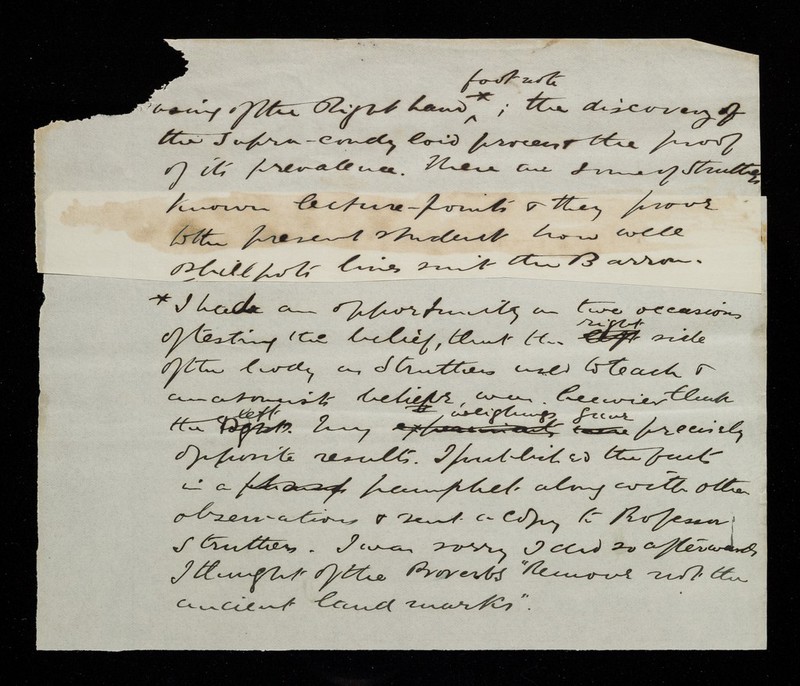 foot note
using of the Right hand * ; the discovery of
the Supra-condyloid process & the proof
of its prevalence. These are some of Struthers
known lecture-points & they prove
to the present student how well
Phillpots lines suit the Barron.
* I had an opportunity on two occasions
of testing the belief, that the right side
of the body as Struthers used to teach &
anatomists believe, was heavier than
the left. My weighings gave precisely
opposite results. I published the fact
in a pamphlet along with other
observations & sent a copy to Professor
Struthers. I was sorry I did so afterwards
I thought of the Proverbs "Remove not the
ancient land marks".